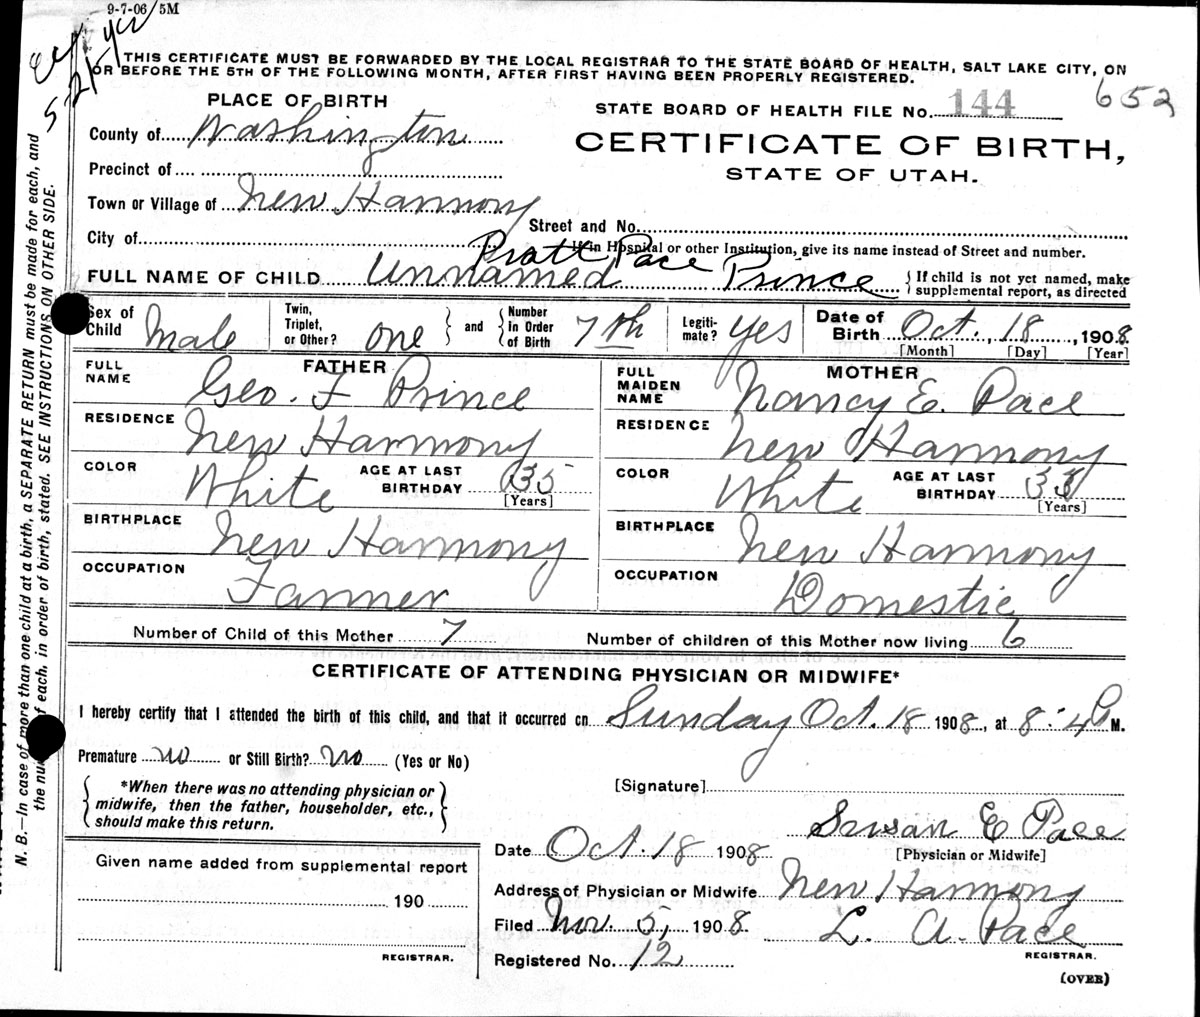 9-7-06 5M
THIS CERTIFICATE MUST BE FORWARDED BY THE LOCAL REGISTRAR TO THE STATE BOARD OF HEALTH, SALT LAKE CITY, ON
OR BEFORE THE 5TH OF THE FOLLOWING MONTH, AFTER FIRST HAVING BEEN PROPERLY REGISTERED.
PLACE OF BIRTH
STATE BOARD OF HEALTH FILE No. 144 652
County of Washington
CERTIFICATE OF BIRTH,
Precinct of
STATE OF UTAH.
Town or Village of New Harmony
Street and No.
City of
If in Hospital or other Institution, give its name instead of Street and number.
Pratt Pace
FULL NAME OF CHILD Unnamed Prince { If child is not yet named, make
supplemental report, as directed
Sex of Child Male Twin, Triplet, or Other? one } and { Number in Order of Birth 7th Legiti-mate? Yes Date of Birth Oct. 18, 1908
[Month] [Day] [Year]
FATHER
FULL NAME Geo. F Prince
RESIDENCE New Harmony
COLOR White AGE AT LAST BIRTHDAY 35 [Years]
BIRTHPLACE New Harmony
OCCUPATION Farmer
MOTHER
FULL MAIDEN NAME Nancy E. Pace
RESIDENCE New Harmony
COLOR White AGE AT LAST BIRTHDAY 33 [Years]
BIRTHPLACE New Harmony
OCCUPATION Domestic
Number of Child of this Mother 7 Number of children of this Mother now living 6
CERTIFICATE OF ATTENDING PHYSICIAN OR MIDWIFE*
I hereby certify that I attended the birth of this child, and that it occurred on Sunday Oct. 18 1908, at 8:4 P M.
Premature no or Still Birth? No (Yes or No)
{ *When there was no attending physician or
midwife, then the father, householder, etc.,
should make this return. }
[Signature]
Susan E Pace
[Physician or Midwife]
Date Oct. 18 1908
Given name added from supplemental report
190
REGISTRAR.
Address of Physician or Midwife New Harmony
Filed Nov. 5, 1908. L. A. Pace
REGISTRAR.
Registered No. 12
(OVER)
N. B.—In case of more than one child at a birth, a SEPARATE RETURN must be made for each, and
the number of each, in order of birth, stated. SEE INSTRUCTIONS ON OTHER SIDE.